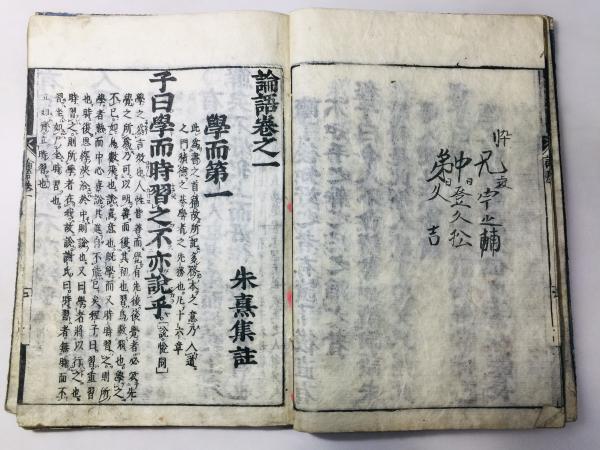 中日登久松
久吉
論語卷之一
朱熹集註
學而第一
此爲書之首篇故所記多務本之意乃入道
之門積德之基學者之先務也凡十六章
子曰學而時習之不亦說乎說悅同
學之爲言效也人性皆善而覺有先後後覺者必效先
覺之所爲乃可以明善而復其初也習鳥數飛也學之
不已如鳥數飛也說喜意也既學而又時時習之則所
學者熟而中心喜說其進自不能已矣程子曰習重習
也時復思繹浹洽於中則說也又曰學者將以行之也
時習之則所學者在我故說謝氏曰時習者無時而不
習坐如尸坐時習也
立如齊立時習也